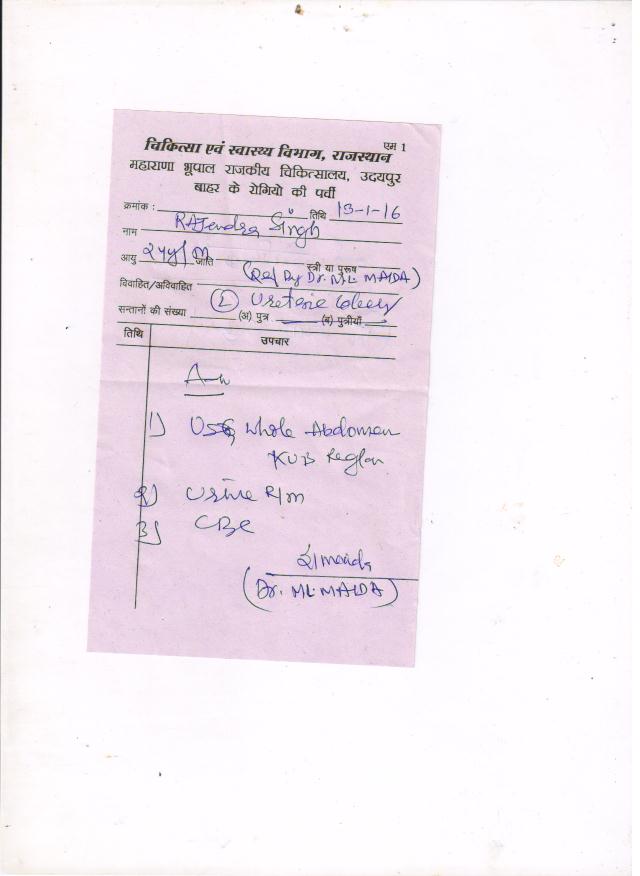 एम 1
चिकित्सा एवं स्वास्थ्य विभाग, राजस्थान
महाराणा भूपाल राजकीय चिकित्सालय, उदयपुर
बाहर के रोगियो की पर्ची
क्रमांक : तिथि 13-1-16
नाम Rajendra Singh
आयु 24y/M जाति स्त्री या पुरूष
(Ref By Dr. ML. MAIDA)
विवाहित/अविवाहित
Ureteric
सन्तानों की संख्या (अ) पुत्र (ब) पुत्रीयाँ
तिथि उपचार
1) USG whole Abdomen
KUB Region
2) Urine R/m
3) CBC
(Dr. ML. MAIDA)